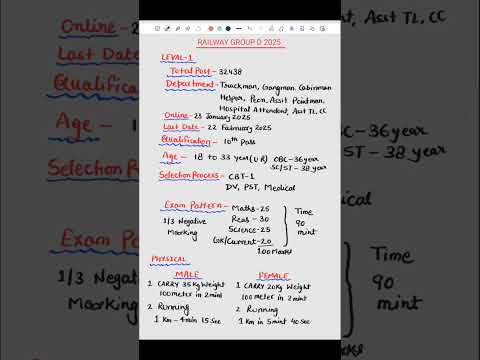 RAILWAY GROUP D 2025
LEVAL-1
Total Post - 32438
Department - Trackman, Gangman, Cabinman
Helper, Peon, Assit Pointman,
Hospital Attendent, Asst TL, CC
Online - 23 January 2025
Last Date - 22 February 2025
Qualification - 10th Pass
Age - 18 to 33 year (UR) OBC - 36 year
SC/ST - 38 year
Selection Process - CBT-1
DV, PST, Medical
Exam Pattern - Maths - 25
Reas - 30
Science - 25
GK/Current - 20
100 Marks
Time
90
mint
1/3 Negative
Marking
PHYSICAL
MALE
1 CARRY 35 Kg Weight
100 meter in 2 mint
2 Running
1 Km - 4 min 15 Sec
FEMALE
1 CARRY 20 Kg Weight
100 meter in 2 mint
2 Running
1 Km in 5 mint 40 Sec
Online -
Last Date
Qualification
Age -
Selection
Exam Pattern
1/3 Negative
Marking
Asst TL, CC
- 36 year
ST - 38 year
Time
90
mint